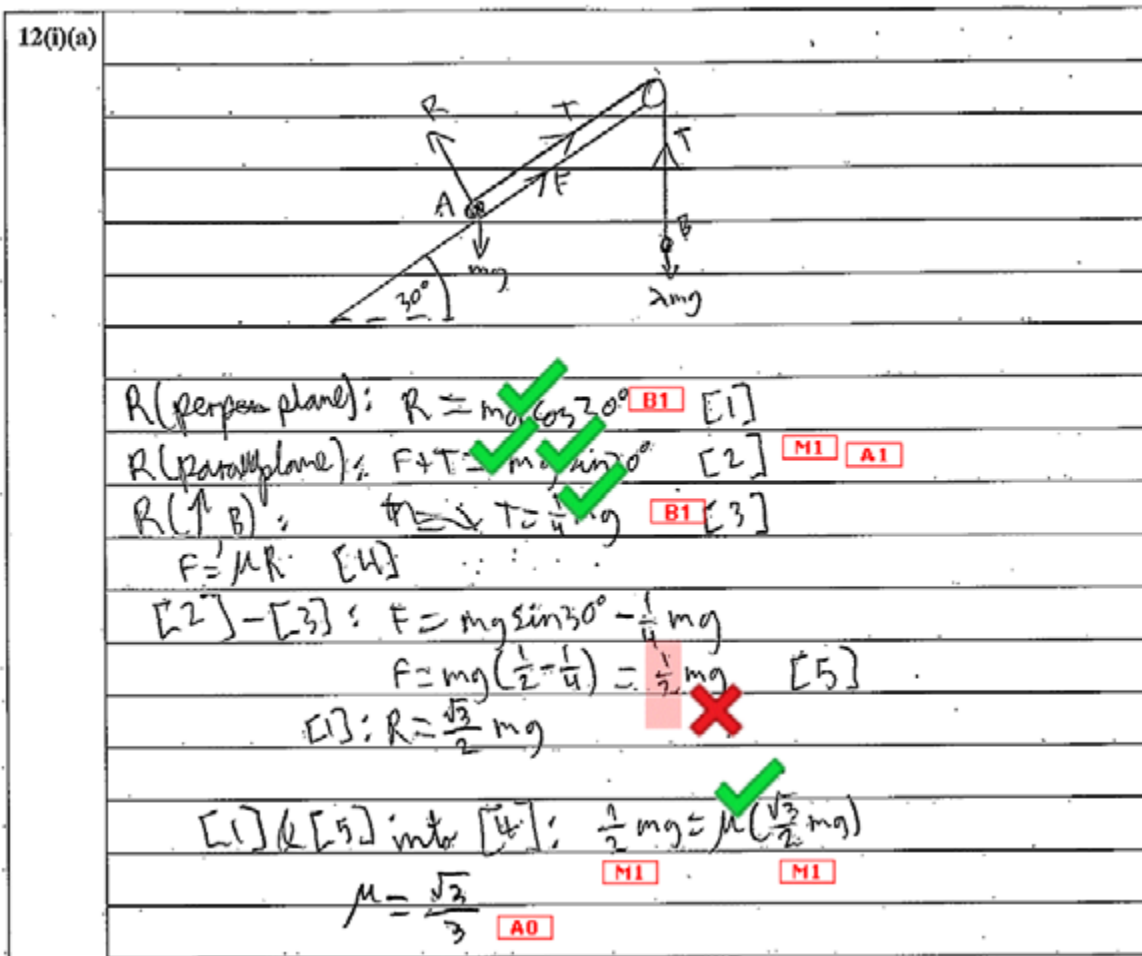 12(i)(a)
R T T
F
A B
mg
30° λmg
R(perp plane): R = mg cos 30° B1 [1]
R(parallel plane): F+T = mg sin 30° [2] M1 A1
R(↑ B): T = 1/4 mg B1 [3]
F = μR [4]
[2]-[3]: F = mg sin 30° - 1/4 mg
F = mg(1/2 - 1/4) = 1/2 mg [5]
[1]: R = √3/2 mg
[1] & [5] into [4]: 1/2 mg = μ(√3/2 mg)
M1 M1
μ = √3/3 A0